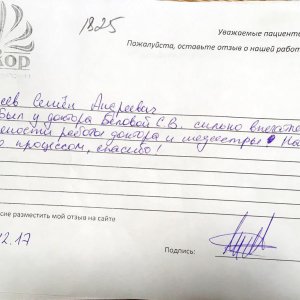 1825
Уважаемые пациенты
Пожалуйста, оставьте отзыв о нашей работ
кор
еев Семён Андреевич
Был у доктора Беловой С.В. сильно впечатл
работы доктора и медсестры. На
процессом, спасибо!
сие разместить мой отзыв на сайте
2.17
Подпись: